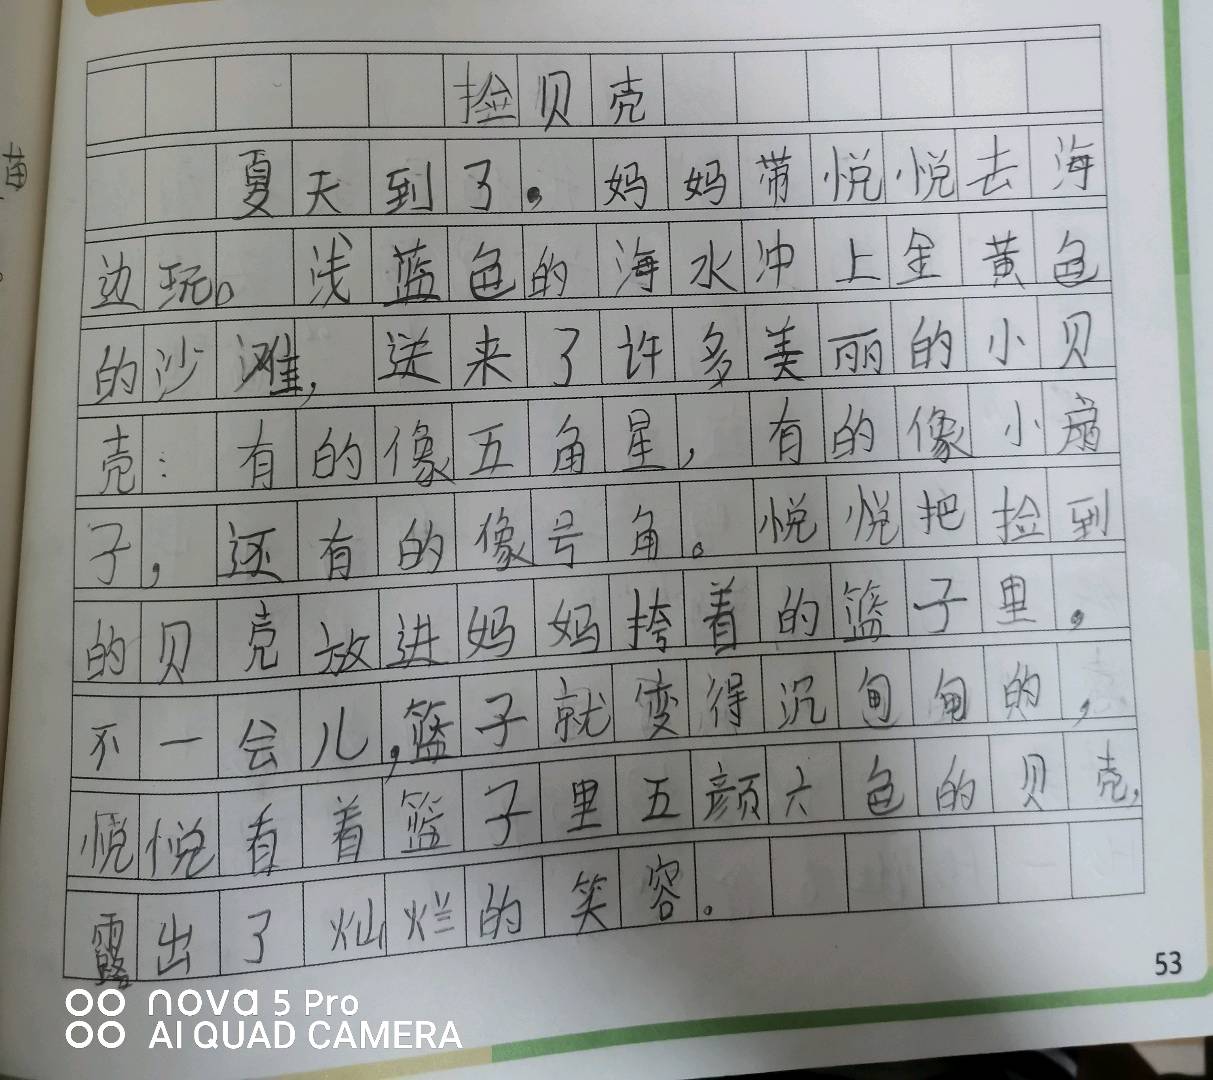 捡贝壳
夏天到了。妈妈带悦悦去海
边玩。浅蓝色的海水冲上金黄色
的沙滩，送来了许多美丽的小贝
壳：有的像五角星，有的像小扇
子，还有的像号角。悦悦把捡到
的贝壳放进妈妈挎着的篮子里，
不一会儿，篮子就变得沉甸甸的，
悦悦看着篮子里五颜六色的贝壳，
露出了灿烂的笑容。
苗
53
nova 5 Pro
AI QUAD CAMERA